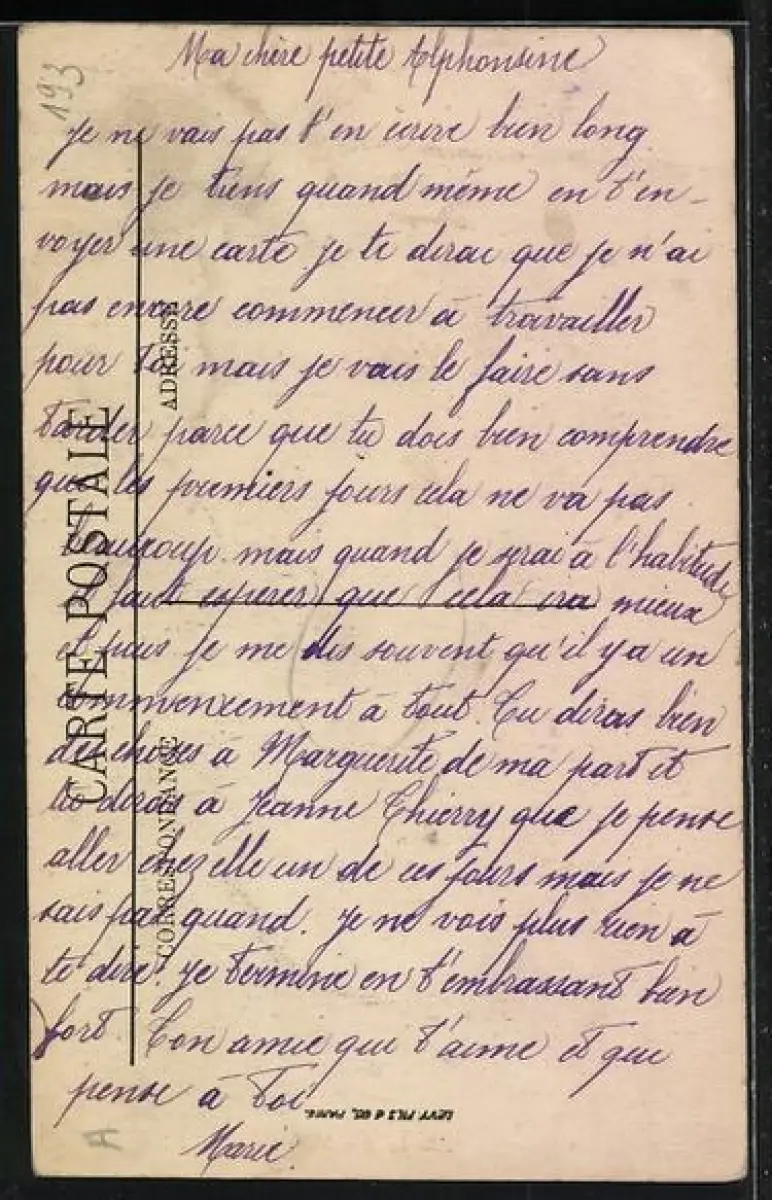 193
Ma chère petite Alphonsine
Je ne vais pas t'en écrire bien long
mais je tiens quand même en t'en-
voyer une carte je te dirai que je n'ai
pas encore commencer à travailler
pour toi mais je vais le faire sans
tarder parce que tu dois bien comprendre
que les premiers jours cela ne va pas
beaucoup. mais quand je serai à l'habitude
il faut espérer que cela ira mieux
et puis je me dis souvent qu'il y a un
commencement à tout. Tu diras bien
des choses à Marguerite de ma part et
tu diras à Jeanne Thierry que je pense
aller chez elle un de ces jours mais je ne
sais pas quand. Je ne vois plus rien à
te dire. Je termine en t'embrassant bien
fort. Ton amie qui t'aime et qui
pense à toi
Marie.
CARTE POSTALE
ADRESSE
CORRESPONDANCE
LEVY FILS & CO, PARIS.
A